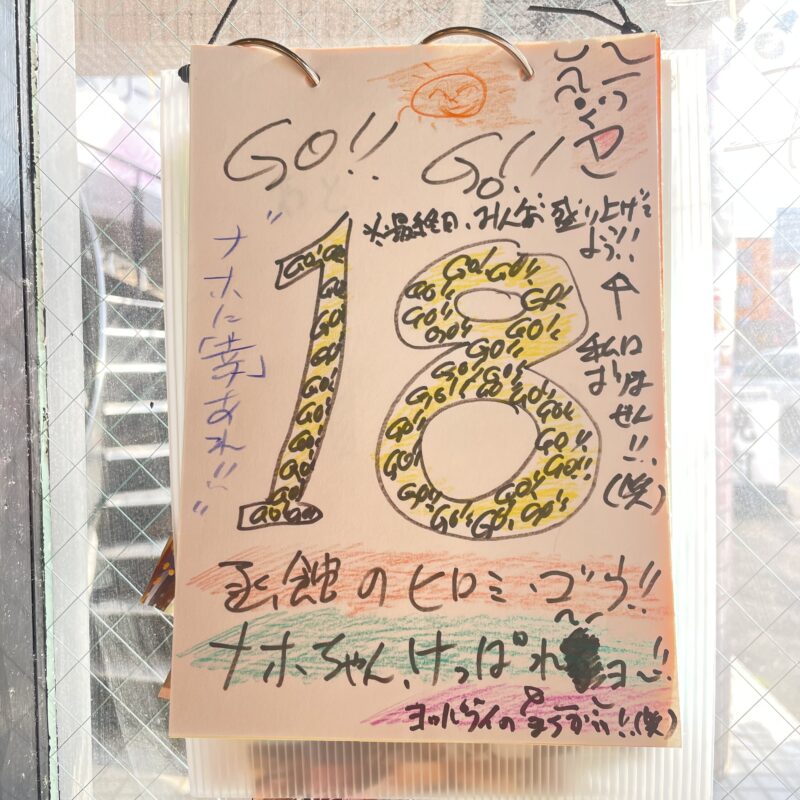 GO!! GO!!
※最終日、みんな盛り上げて
よう!!
↑
私は
おりま
せん!!
(笑)
"ナホに「幸」あれ!!"
18
GO!! GO!! GO!! GO!! GO!! GO!! GO!! GO!! GO!! GO!!
函館のヒロミ・ゴウ!!
ナホちゃん、けっぱれヨ~!!
ヨッパライのまちがい!!(笑)